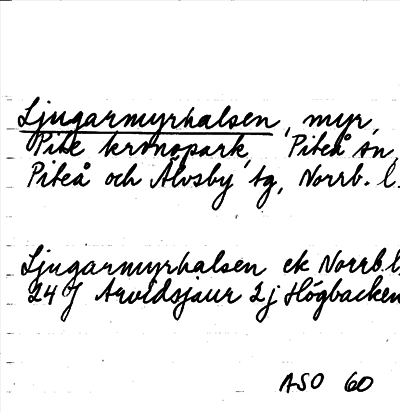 Ljugarmyrhalsen, myr,
Pite kronopark, Piteå sn,
Piteå och Älvsby tg, Norrb. l.
Ljugarmyrhalsen ek Norrb. l.
24 J Arvidsjaur 2 j Högbacken
ASO 60